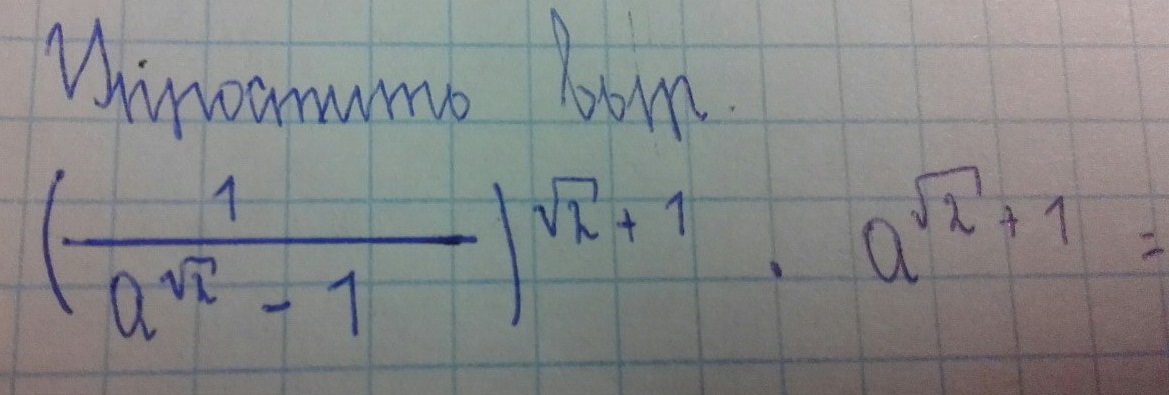 Упростить выр.
(1 / (a^√2 - 1))^(√2 + 1) · a^(√2 + 1) =